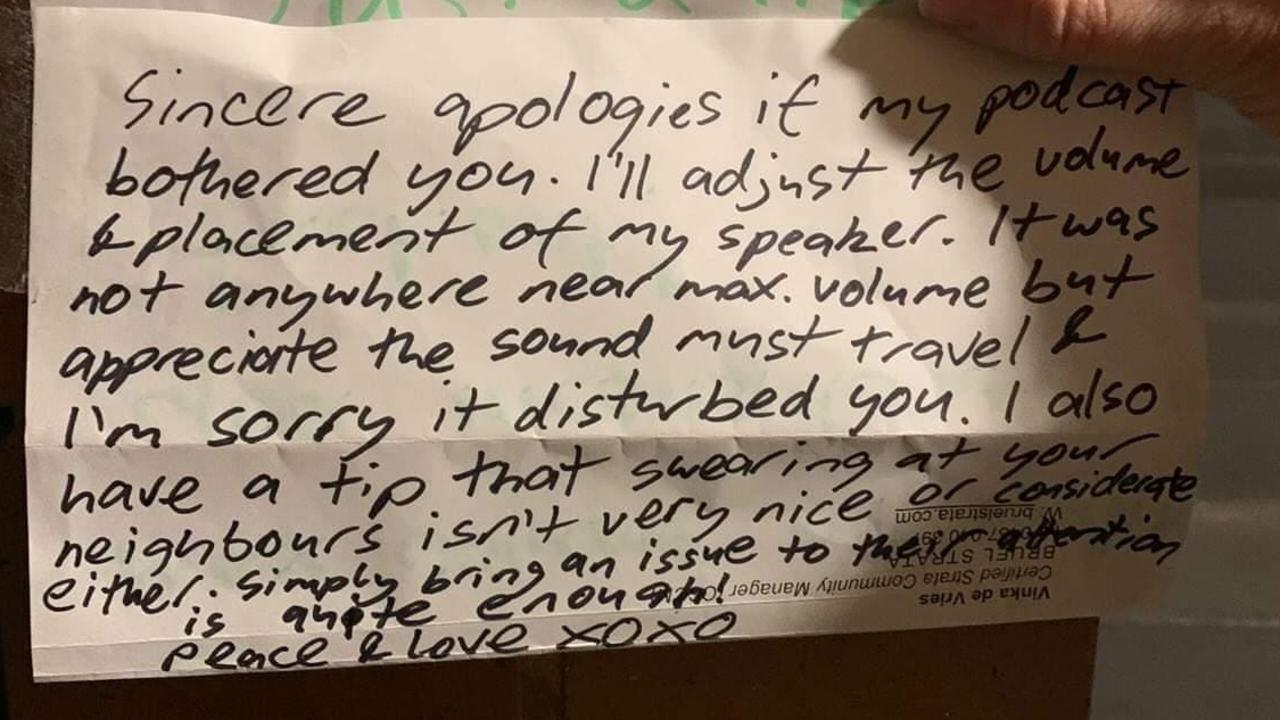 Sincere apologies if my podcast
bothered you. I'll adjust the volume
& placement of my speaker. It was
not anywhere near max. volume but
appreciate the sound must travel &
I'm sorry it disturbed you. I also
have a tip that swearing at your
neighbours isn't very nice or considerate
either. Simply bring an issue to their attention
is quite enough!
Peace & Love XOXO
Vinka de Vries
Certified Strata Community Manager
BRUEL STRATA
W. bruelstrata.com